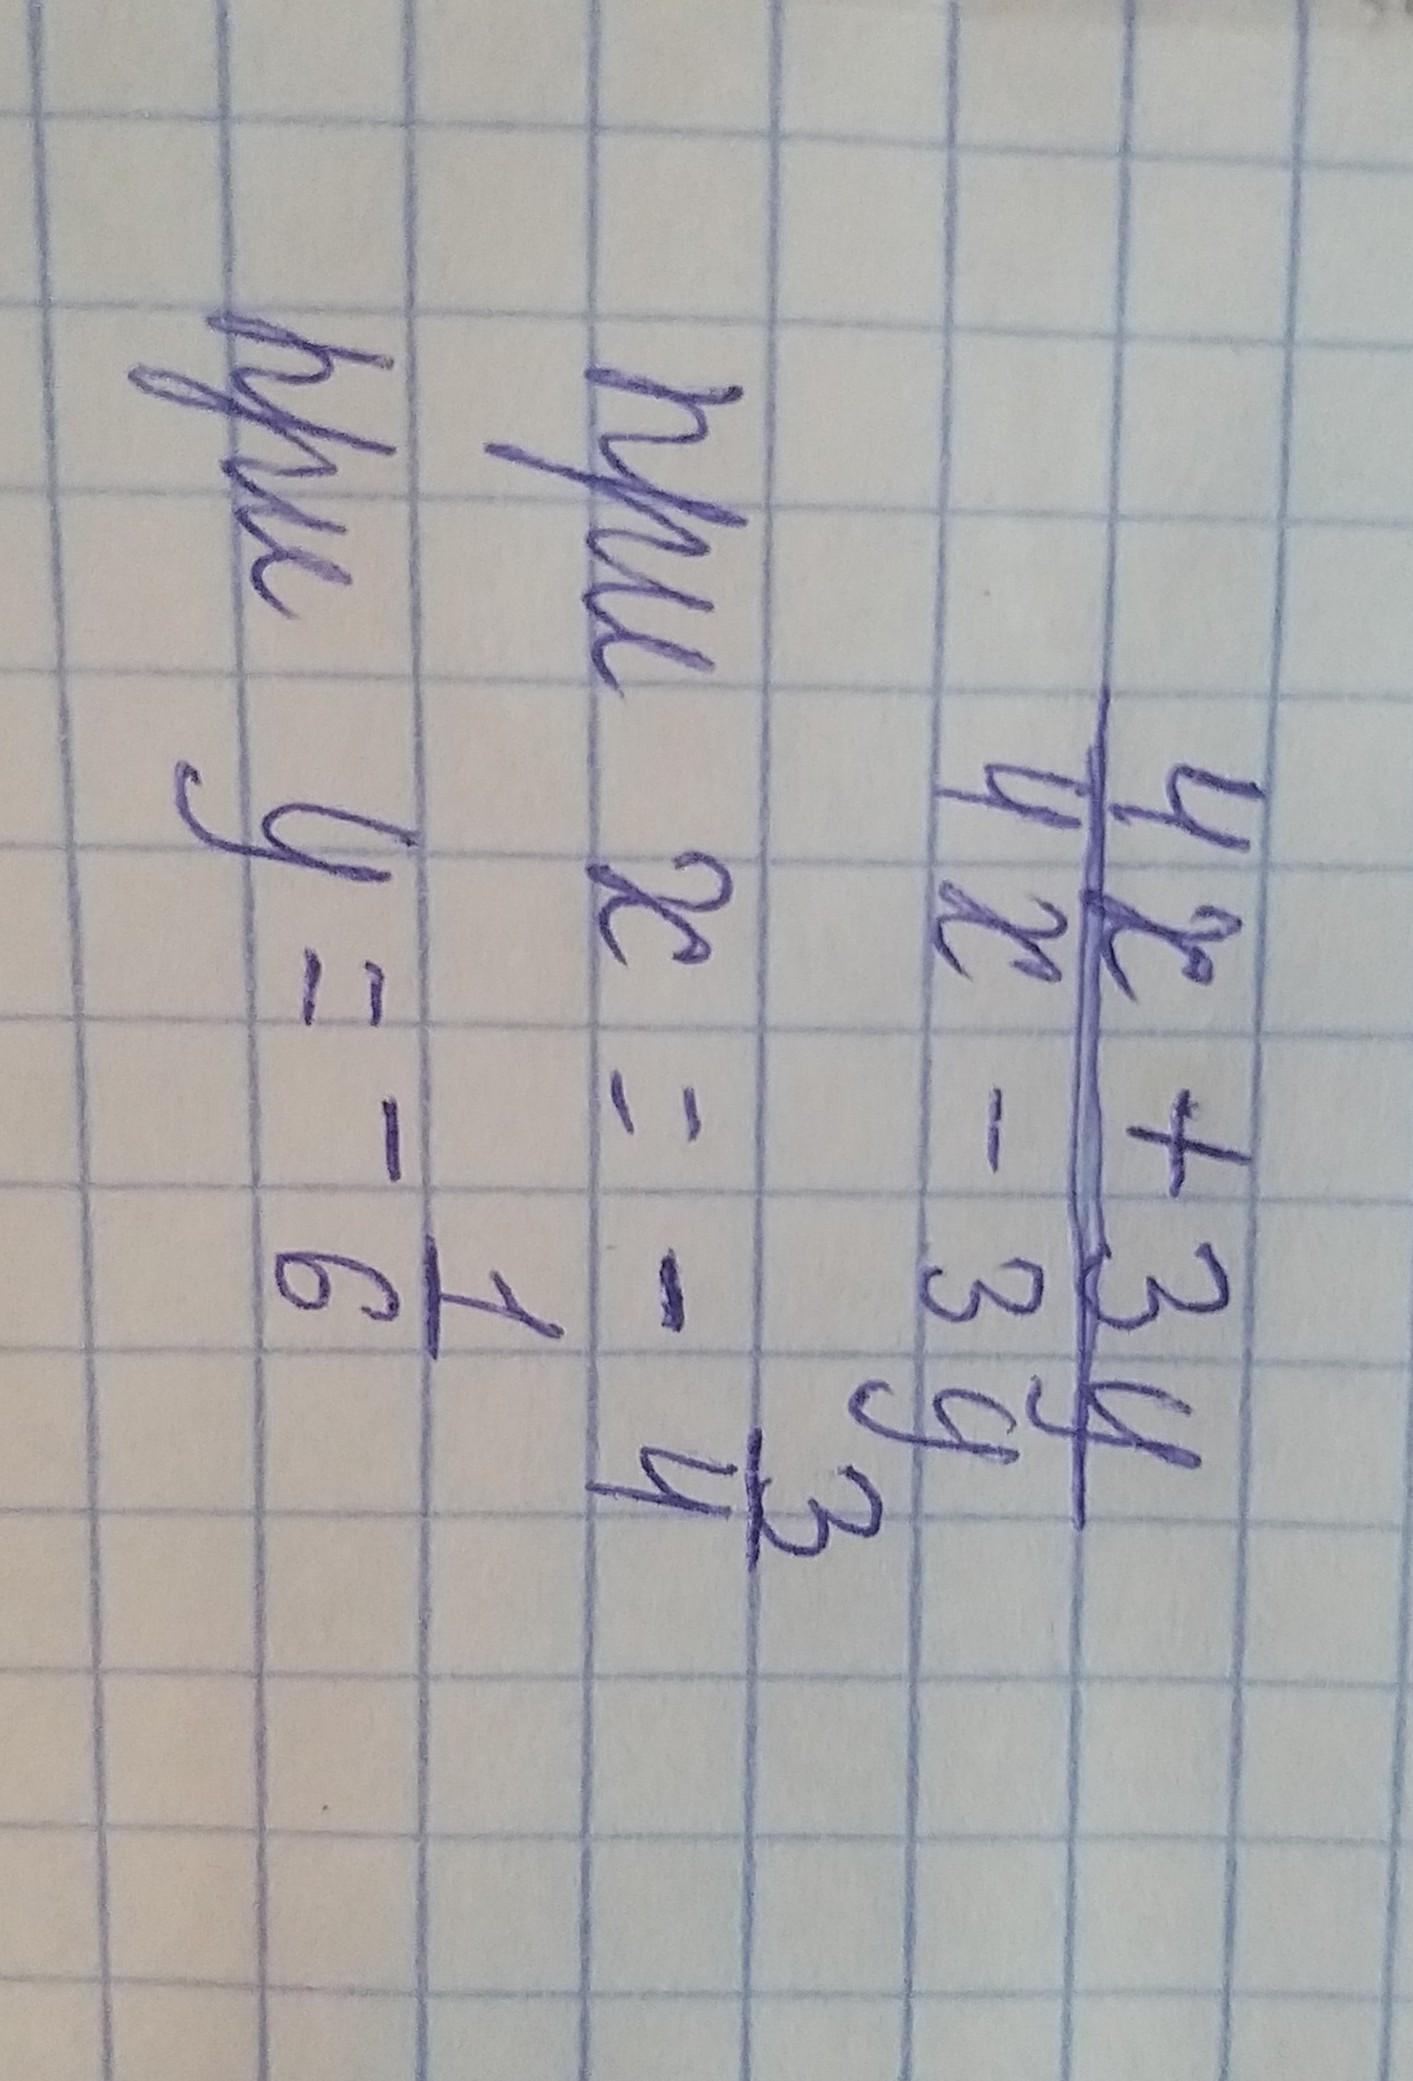 4x + 3y
4x - 3y
при x = - 3/4
при y = - 1/6